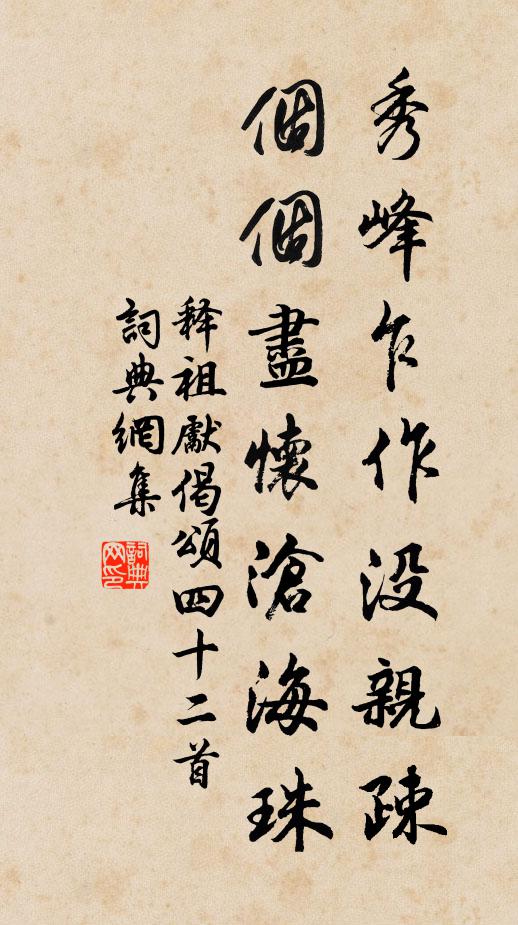 秀峰乍作没親疎
個個盡懷滄海珠
释祖獻偈頌四十二首
詞典網集
詞典網印